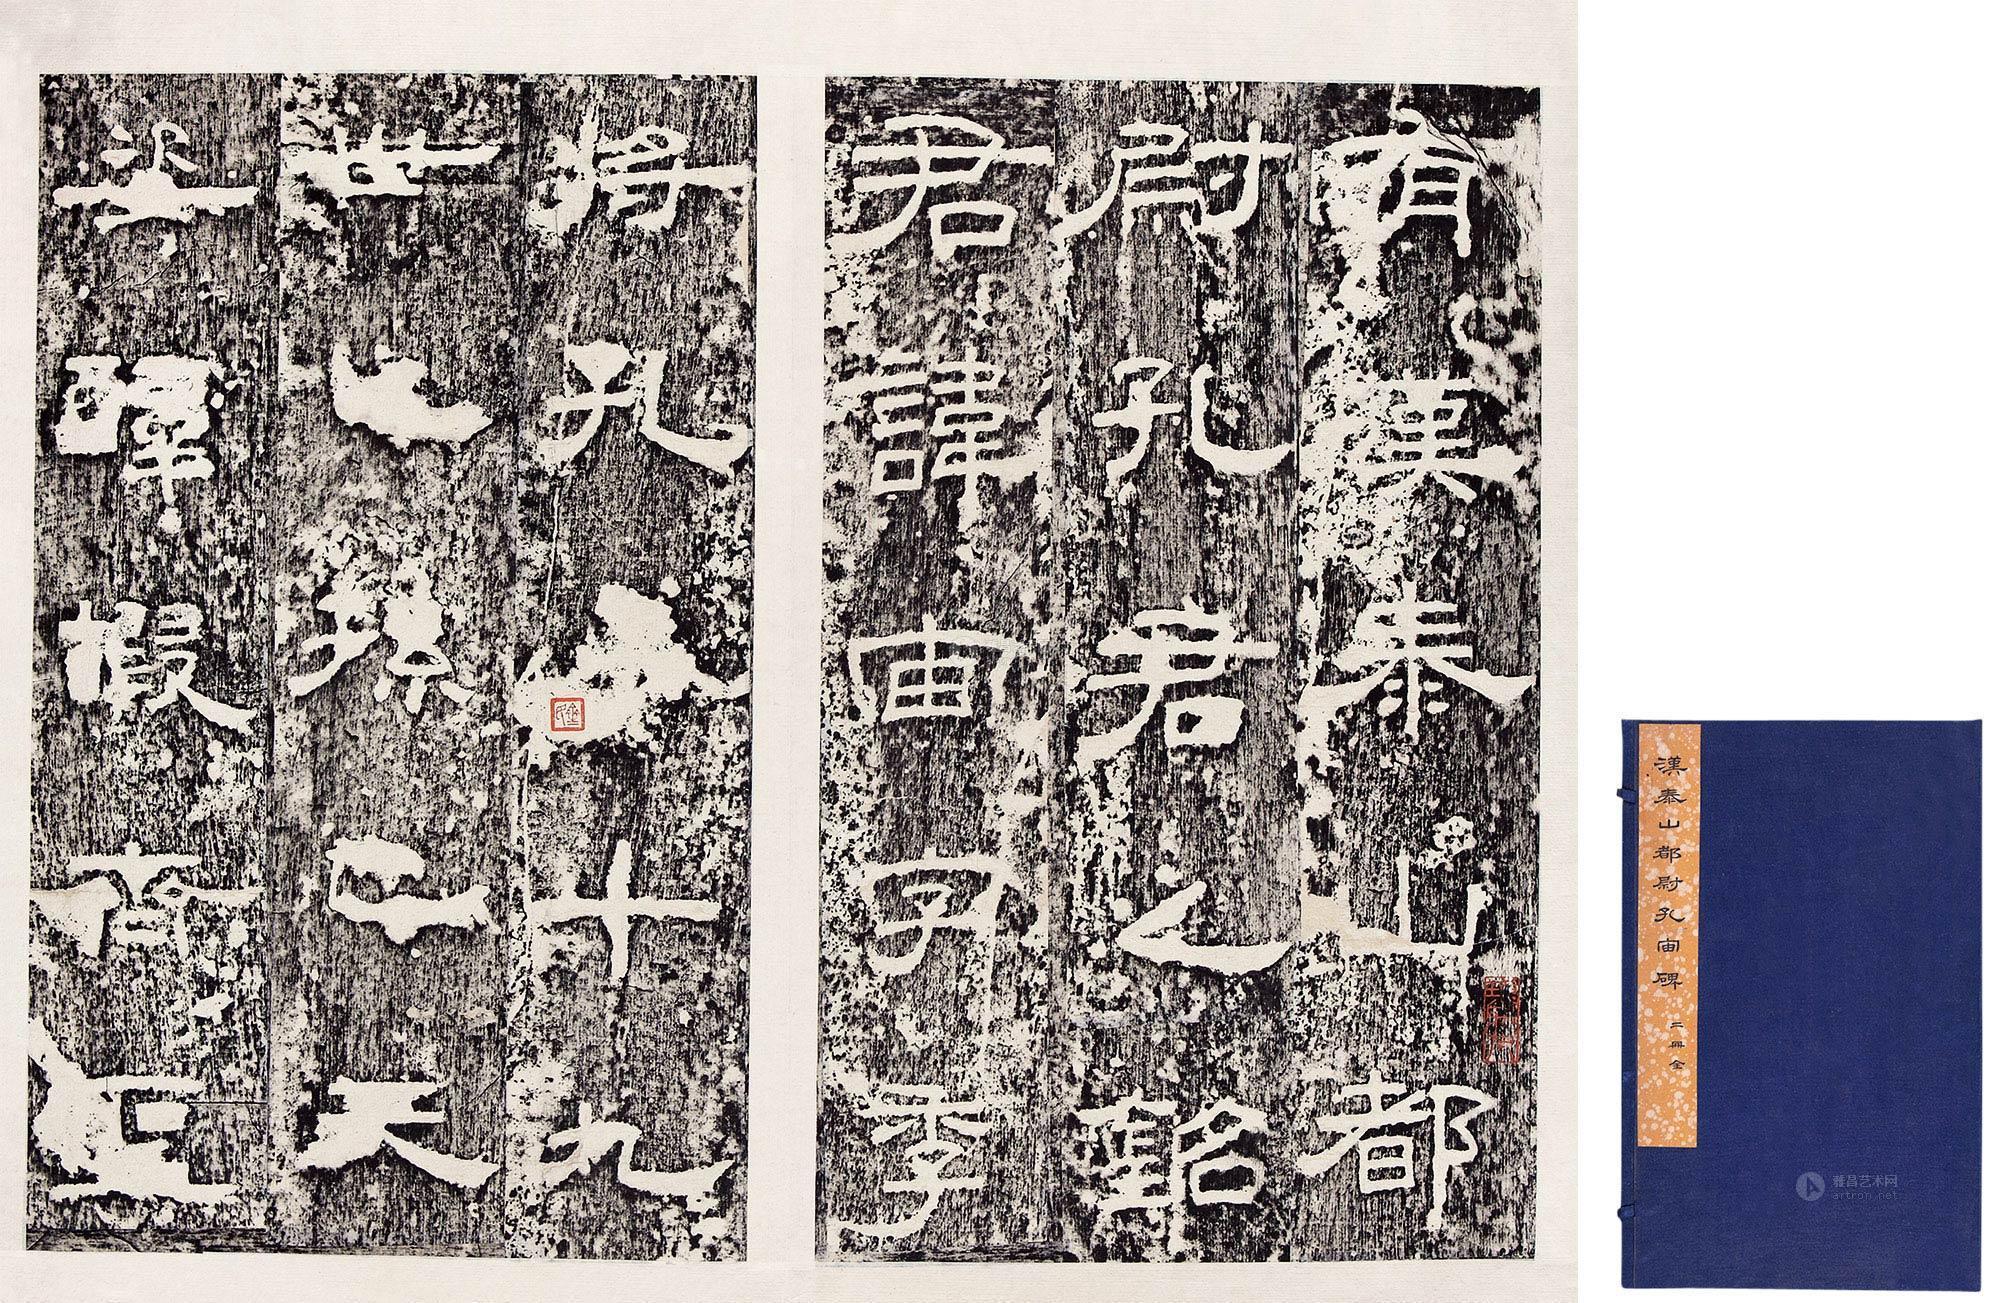 有漢泰山都
尉孔君之銘
君諱宙字季
將孔十九
世之孫也天
姿醇嘏齊聖
漢泰山都尉孔宙碑 二冊全
雅昌艺术网
artron.net